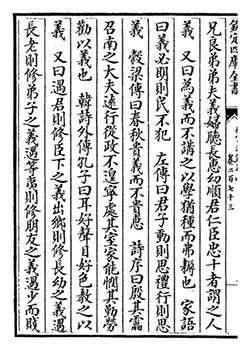 欽定四庫全書
卷二百七十三
兄良弟弟夫義婦聽長惠幼順君仁臣忠十者謂之人
義　又曰為義而不講之以學猶種而弗耨也　家語
曰義必明則民不犯　左傳曰君子動則思禮行則思
義　穀梁傳曰春秋貴義而不貴惠　詩序曰殷其靁
召南之大夫遠行從政不遑寧處其室家能憫其勤勞
勸以義也　韓詩外傳孔子曰耳好聲目好色教之以
義　又曰遇君則修臣下之義出鄉則修長幼之義遇
長老則修弟子之義遇等夷則修朋友之義遇少而賤